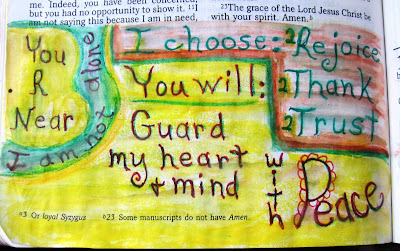 me. Indeed, you have been concerned,
but you had no opportunity to show it. 11I
am not saying this because I am in need,
23The grace of the Lord Jesus Christ be
with your spirit. Amen.b
You
R
Near
I am not alone
I choose:
2Rejoice
2Thank
2Trust
You will:
Guard
my heart
+ mind
with
Peace
a3 Or loyal Syzygus
b23 Some manuscripts do not have Amen.